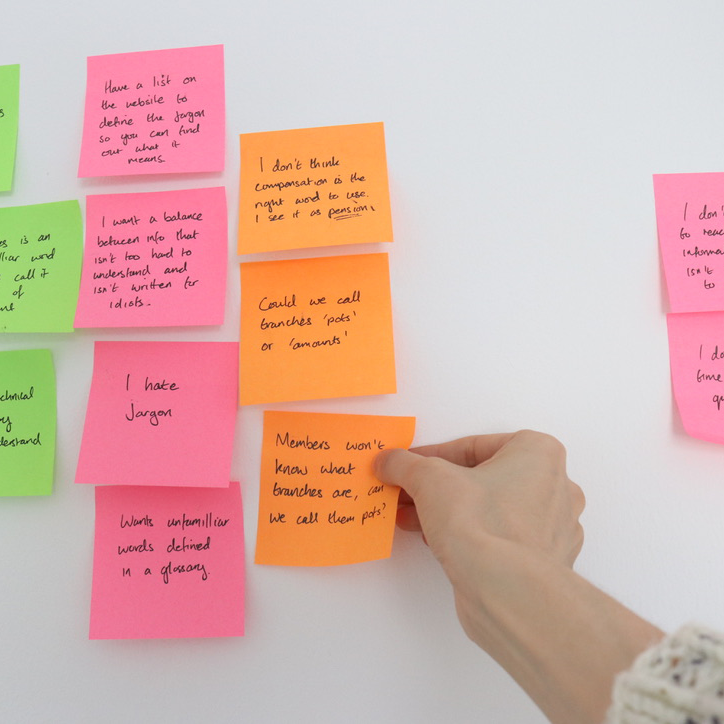 s
es is an
lliar word
call it
of
nt
chnical
ey
derstand
Have a list on
the website to
define the jargon
so you can find
out what it
means.
I want a balance
between info that
isn't too hard to
understand and
isn't written for
idiots.
I hate
jargon
Wants unfamiliar
words defined
in a glossary.
I don't think
compensation is the
right word to use.
I see it as pension.
Could we call
branches 'pots'
or 'amounts'
Members won't
know what
branches are, can
we call them pots?
I don'
to read
informa
isn't
to
I do
time
qu